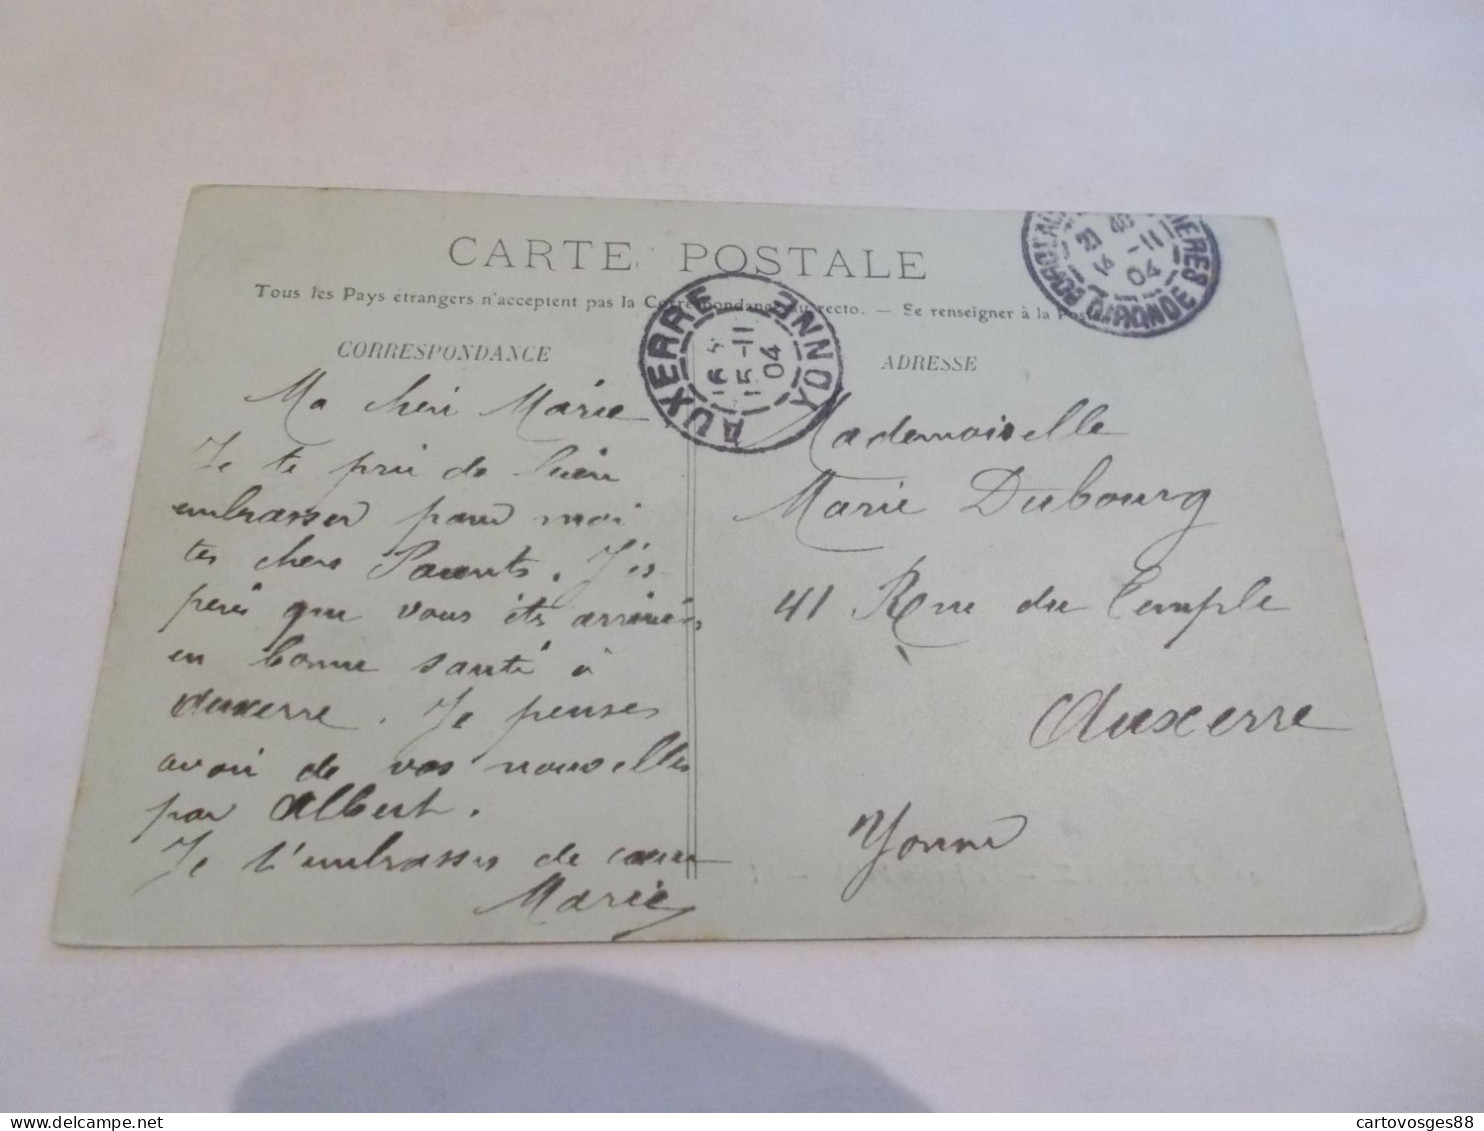 CARTE POSTALE
Tous les Pays étrangers n'acceptent pas la Correspondance au recto. — Se renseigner à la Pos
CORRESPONDANCE
Ma cheri Marie
Je te pri de bien
embrasser pour moi
tes chers Parents. J'es
peré que vous ète arrivés
en bonne santé à
Auxerre. Je penses
avoir de vos nouvelles
par Albert.
Je t'embrasses de cœur
Marie
ADRESSE
Mademoiselle
Marie Dubourg
41 Rue du Temple
Auxerre
Yonne
AUXERRE YONNE
15-11
04
BORDEAUX GIRONDE
21 40
14 -11
04
cartovosges88